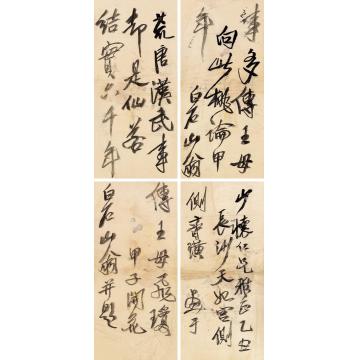 年
多傳王母
向此桃論甲
白石山翁
荒唐漢武事
却是仙家
結實六千年
少懷仁兄雅正乙丑
長沙天妃宮側
側齊璜畫于
傳王母飛瓊
甲子開花
白石山翁并題